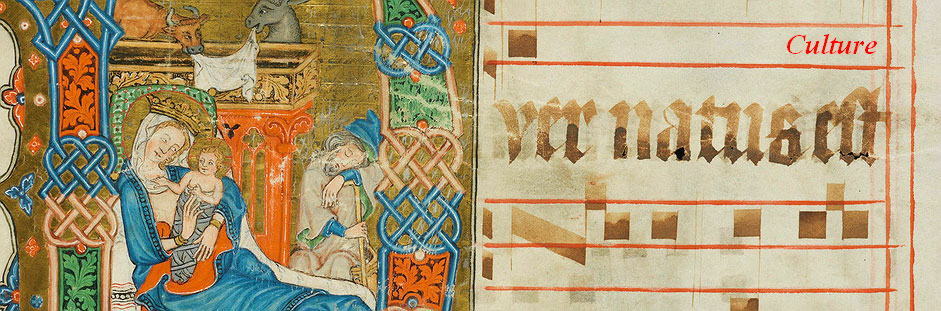 Culture
ver natus est